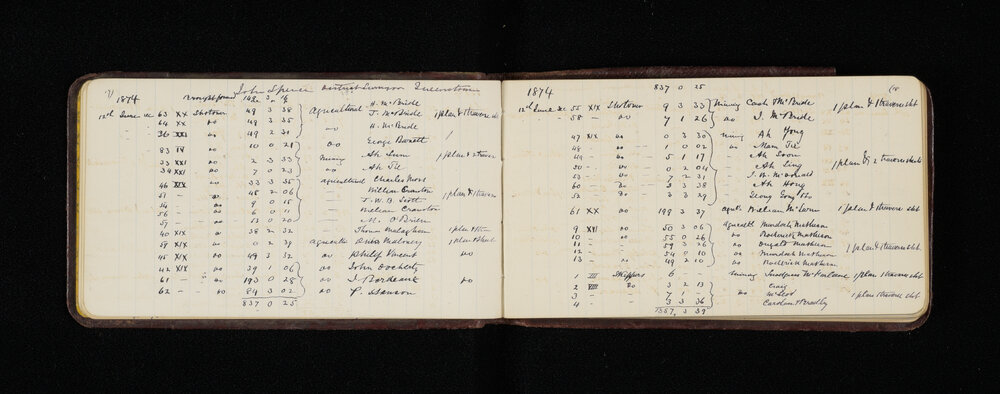 John Spence District Surveyor Queenstown
1874 Brought forward 142 3 12
12th June 63 XX Shotover 49 3 38 Agricultural H. McBride
64 XX Do 49 3 35 J. McBride 1 plan & 1 traverse sht
36 XXI Do 49 2 31 Do H. McBride
83 IV Do 10 0 21 Do George Barrett 1
33 XXI Do 2 3 33 Mining Ah Lum 1 plan & 2 traverse
34 XXI Do 7 0 23 Do Ah Tie
46 XIX Do 33 3 35 Agricultural Charles Moss
51 - Do 48 2 06 William Cranston 1 plan & 1 traverse
54 - Do 9 0 15 T. W. B. Scott
56 - Do 6 0 11 William Cranston
57 - Do 13 0 20 M. O'Brien
40 XIX Do 38 2 32 Thomas Malaghan 1 plan
59 XIX Do 0 2 39 Agricult Denis Maloney 1 plan
45 XIX Do 49 3 32 Do Philip Vincent Do
42 XIX Do 39 1 06 Do John Docherty
61 - Do 193 0 28 Do J. Bordeaux Do
62 - Do 84 3 02 Do P. Hanson
837 0 25
1874 837 0 25
12th June 55 XIX Shotover 9 3 33 Mining Cash & McBride 1 plan & 1 traverse sht
58 - Do 7 1 26 Do J. McBride
47 XIX Do 0 3 30 Mining Ah Yong
48 - Do 1 0 02 Do Mam Tie
49 - Do 5 1 17 - Ah Soon
50 - Do 0 2 04 - Ah Ling 1 plan & 2 traverse shts
53 - Do 7 2 31 - J. W. McDonald
60 - Do 3 3 38 - Ah Hong
52 - Do 3 3 29
61 XX Do 199 3 37 Agric William McLean 1 plan & 1 traverse sht
9 XVI Do 50 3 06 Agricult Murdoch Matheson
10 - Do 55 0 26 Do Roderick Matheson
11 - Do 59 3 26 Do Dugald Matheson 1 plan & 1 traverse sht
12 - Do 54 0 10 Do Murdoch Matheson
13 - Do 49 2 10 Do Roderick Matheson
1 III Skippers 6 - - Mining McFarlane 1 plan 1 traverse sht
2 VIII Do 3 2 13 Craig
3 - 7 1 - Do McLeod 1 plan 1 traverse sht
4 - 3 3 36 Caroline & Bradley
1357 3 39